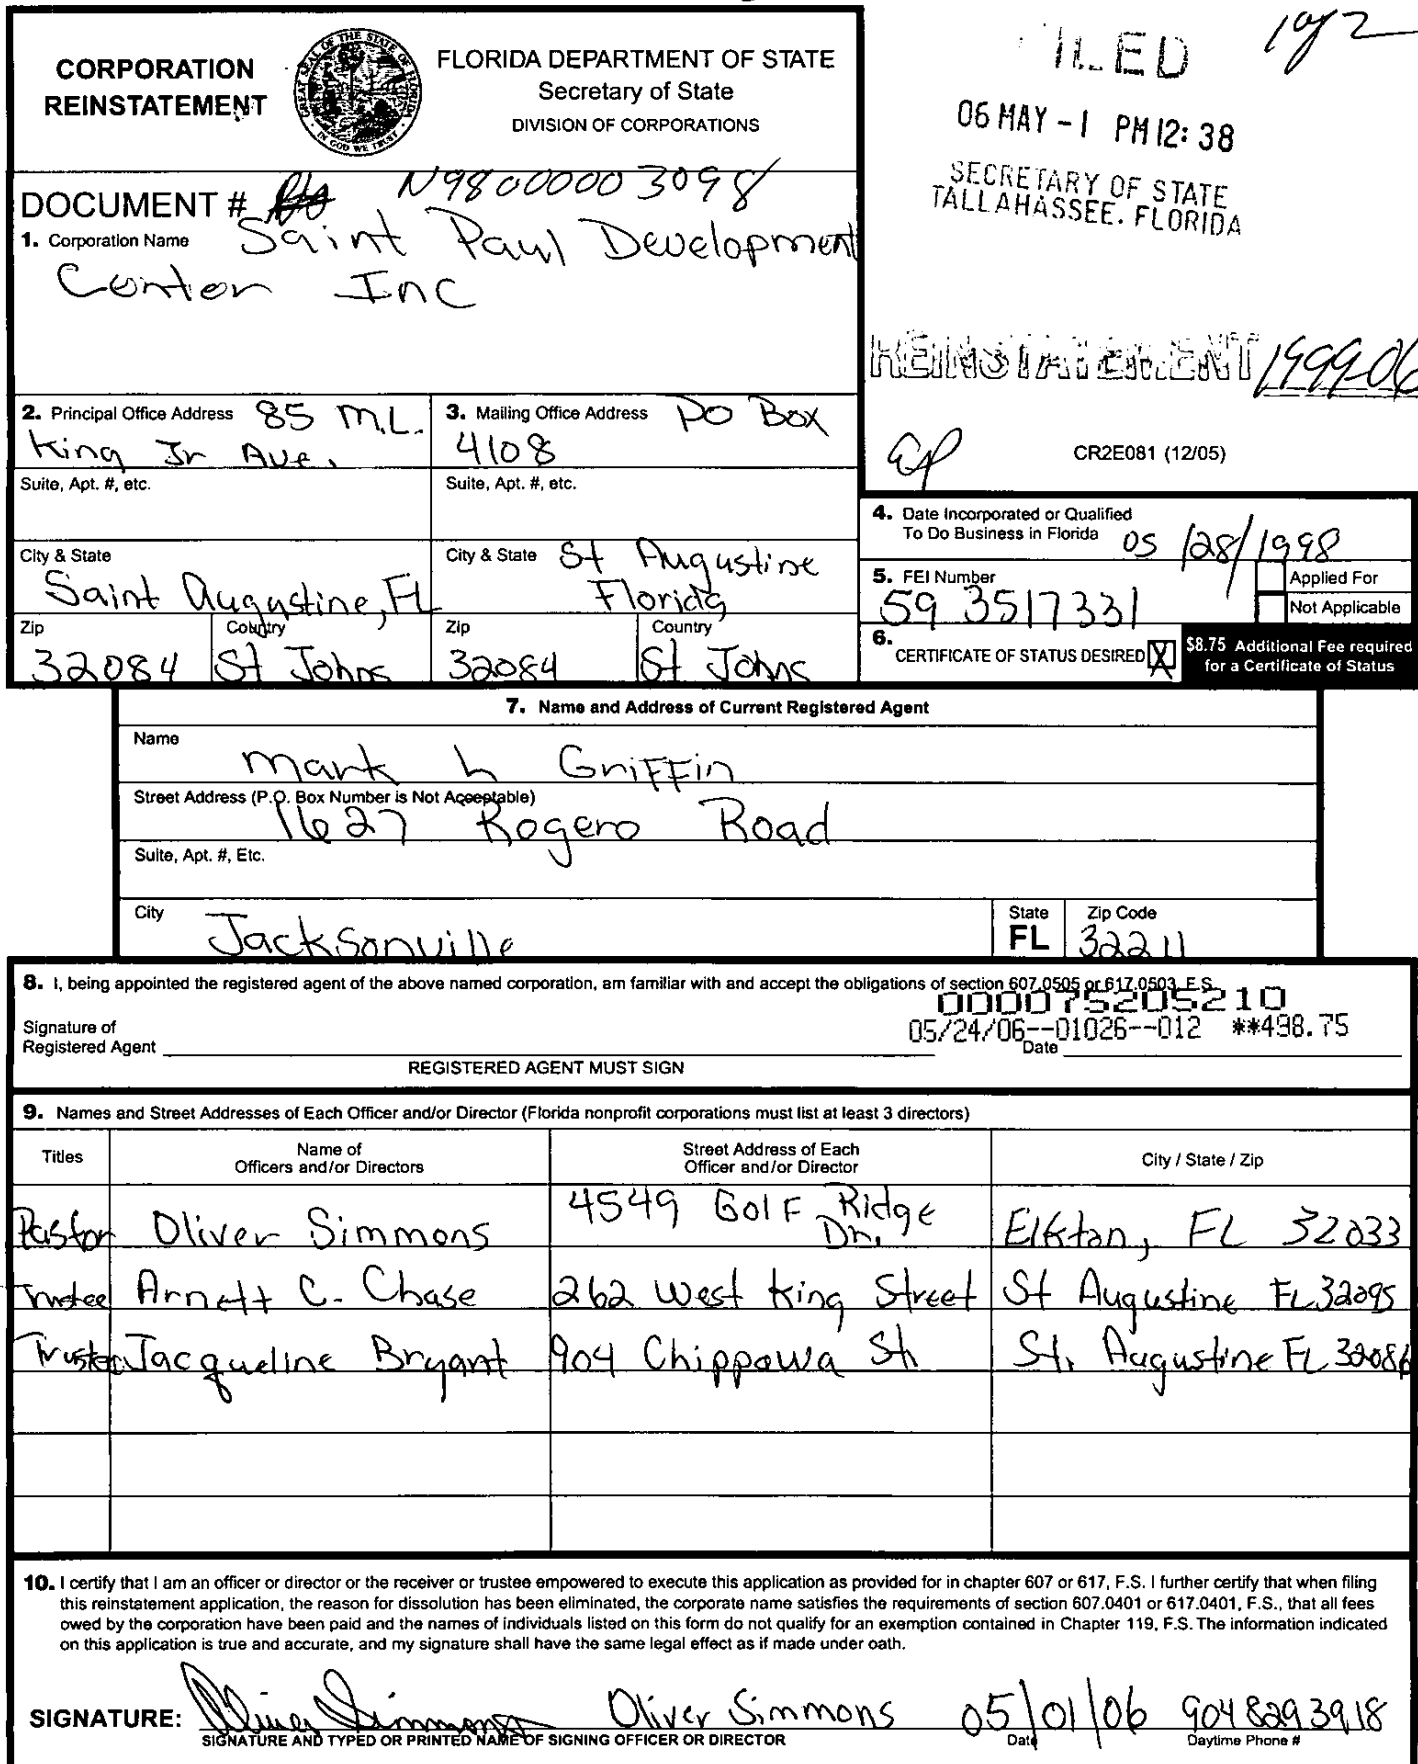 1 of 2
FILED
06 MAY -1 PM 12: 38
SECRETARY OF STATE
TALLAHASSEE, FLORIDA
CORPORATION
REINSTATEMENT
FLORIDA DEPARTMENT OF STATE
Secretary of State
DIVISION OF CORPORATIONS
DOCUMENT # N98000003098
1. Corporation Name Saint Paul Development
Center Inc
REINSTATEMENT 1999-06
2. Principal Office Address 85 M.L.
King Jr Ave.
Suite, Apt. #, etc.
City & State
Saint Augustine, FL
Zip Country
32084 St Johns
3. Mailing Office Address PO Box
4108
Suite, Apt. #, etc.
City & State St Augustine
Florida
Zip Country
32084 St Johns
CR2E081 (12/05)
4. Date Incorporated or Qualified
To Do Business in Florida 05/28/1998
5. FEI Number
59 3517331
Applied For
Not Applicable
6. CERTIFICATE OF STATUS DESIRED X
$8.75 Additional Fee required
for a Certificate of Status
7. Name and Address of Current Registered Agent
Name
Mark L Griffin
Street Address (P.O. Box Number is Not Acceptable)
1627 Rogero Road
Suite, Apt. #, Etc.
City Jacksonville
State
FL
Zip Code
32211
8. I, being appointed the registered agent of the above named corporation, am familiar with and accept the obligations of section 607.0505 or 617.0503, F.S.
000075205210
05/24/06--01026--012 **498.75
Signature of
Registered Agent
Date
REGISTERED AGENT MUST SIGN
9. Names and Street Addresses of Each Officer and/or Director (Florida nonprofit corporations must list at least 3 directors)
Titles
Name of
Officers and/or Directors
Street Address of Each
Officer and/or Director
City / State / Zip
Pastor Oliver Simmons 4549 Golf Ridge Dr. Elkton, FL 32033
Trustee Arnett C. Chase 262 West King Street St Augustine FL 32095
Trustee Jacqueline Bryant 904 Chippowa St. St. Augustine FL 32086
10. I certify that I am an officer or director or the receiver or trustee empowered to execute this application as provided for in chapter 607 or 617, F.S. I further certify that when filing
this reinstatement application, the reason for dissolution has been eliminated, the corporate name satisfies the requirements of section 607.0401 or 617.0401, F.S., that all fees
owed by the corporation have been paid and the names of individuals listed on this form do not qualify for an exemption contained in Chapter 119, F.S. The information indicated
on this application is true and accurate, and my signature shall have the same legal effect as if made under oath.
SIGNATURE: Oliver Simmons Oliver Simmons 05/01/06 904 829 3918
SIGNATURE AND TYPED OR PRINTED NAME OF SIGNING OFFICER OR DIRECTOR
Date
Daytime Phone #